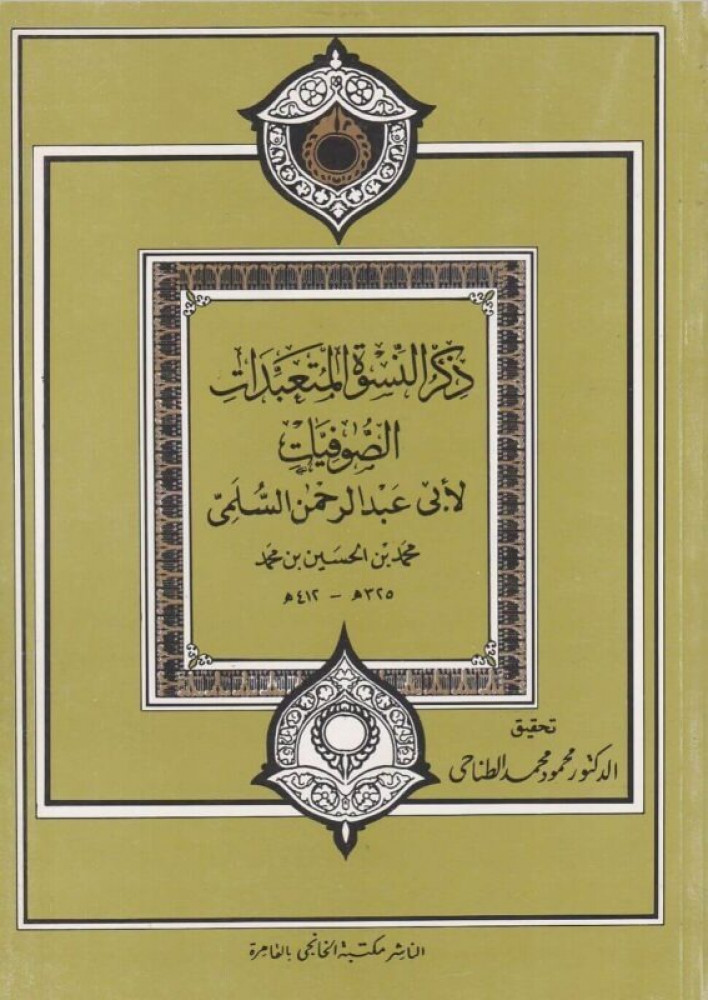 ذِكْرُ النِّسْوَةِ المُتَعَبِّدَاتِ
الصُّوفِيَّاتِ
لأبى عَبْدالرحمٰن السُّلَمِىّ
محمّد بْن الحسَين بن محمّد
٣٢٥ھ - ٤١٢ھ
تحقيق
الدكتور محمود محمد الطناحى
الناشر مكتبة الخانجى بالقاهرة